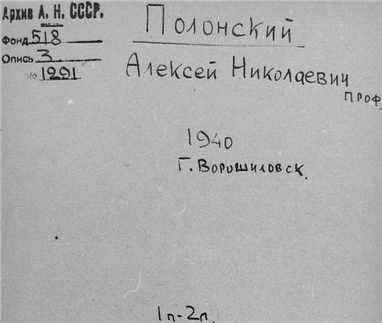 Архив А. Н. СССР.
Фонд 518
Опись 3
№ 1291
Полонский
Алексей Николаевич
проф.
1940
г. Ворошиловск.
1п-2п.